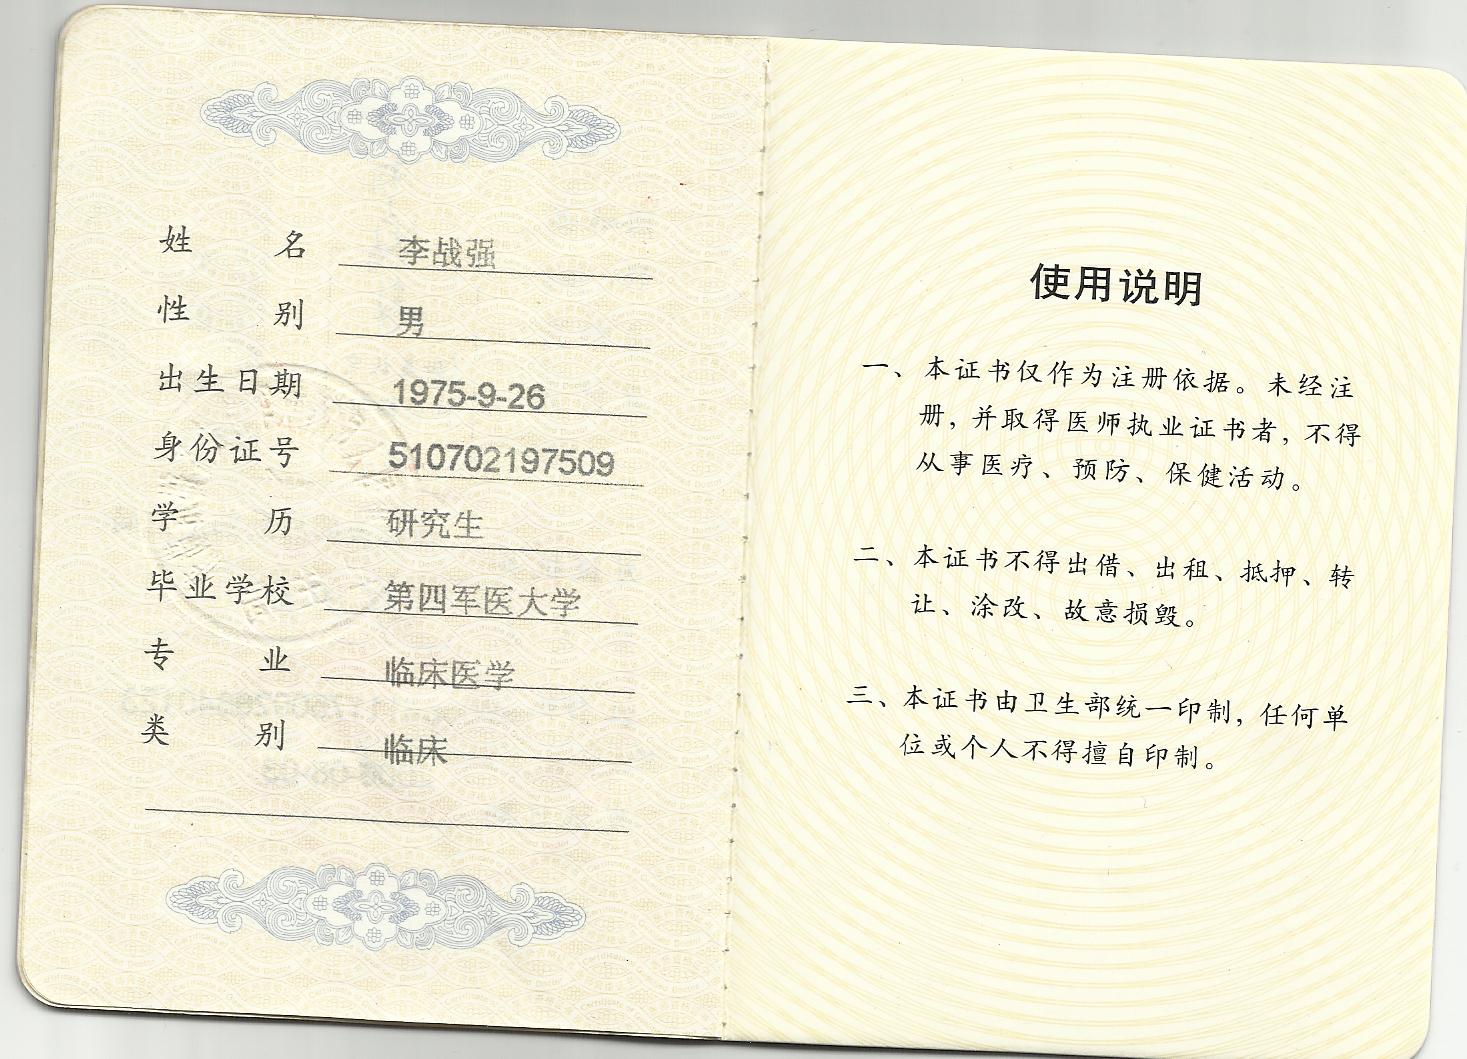 姓名 李战强
性别 男
出生日期 1975-9-26
身份证号 510702197509
学历 研究生
毕业学校 第四军医大学
专业 临床医学
类别 临床
使用说明
一、本证书仅作为注册依据。未经注
册，并取得医师执业证书者，不得
从事医疗、预防、保健活动。
二、本证书不得出借、出租、抵押、转
让、涂改、故意损毁。
三、本证书由卫生部统一印制，任何单
位或个人不得擅自印制。